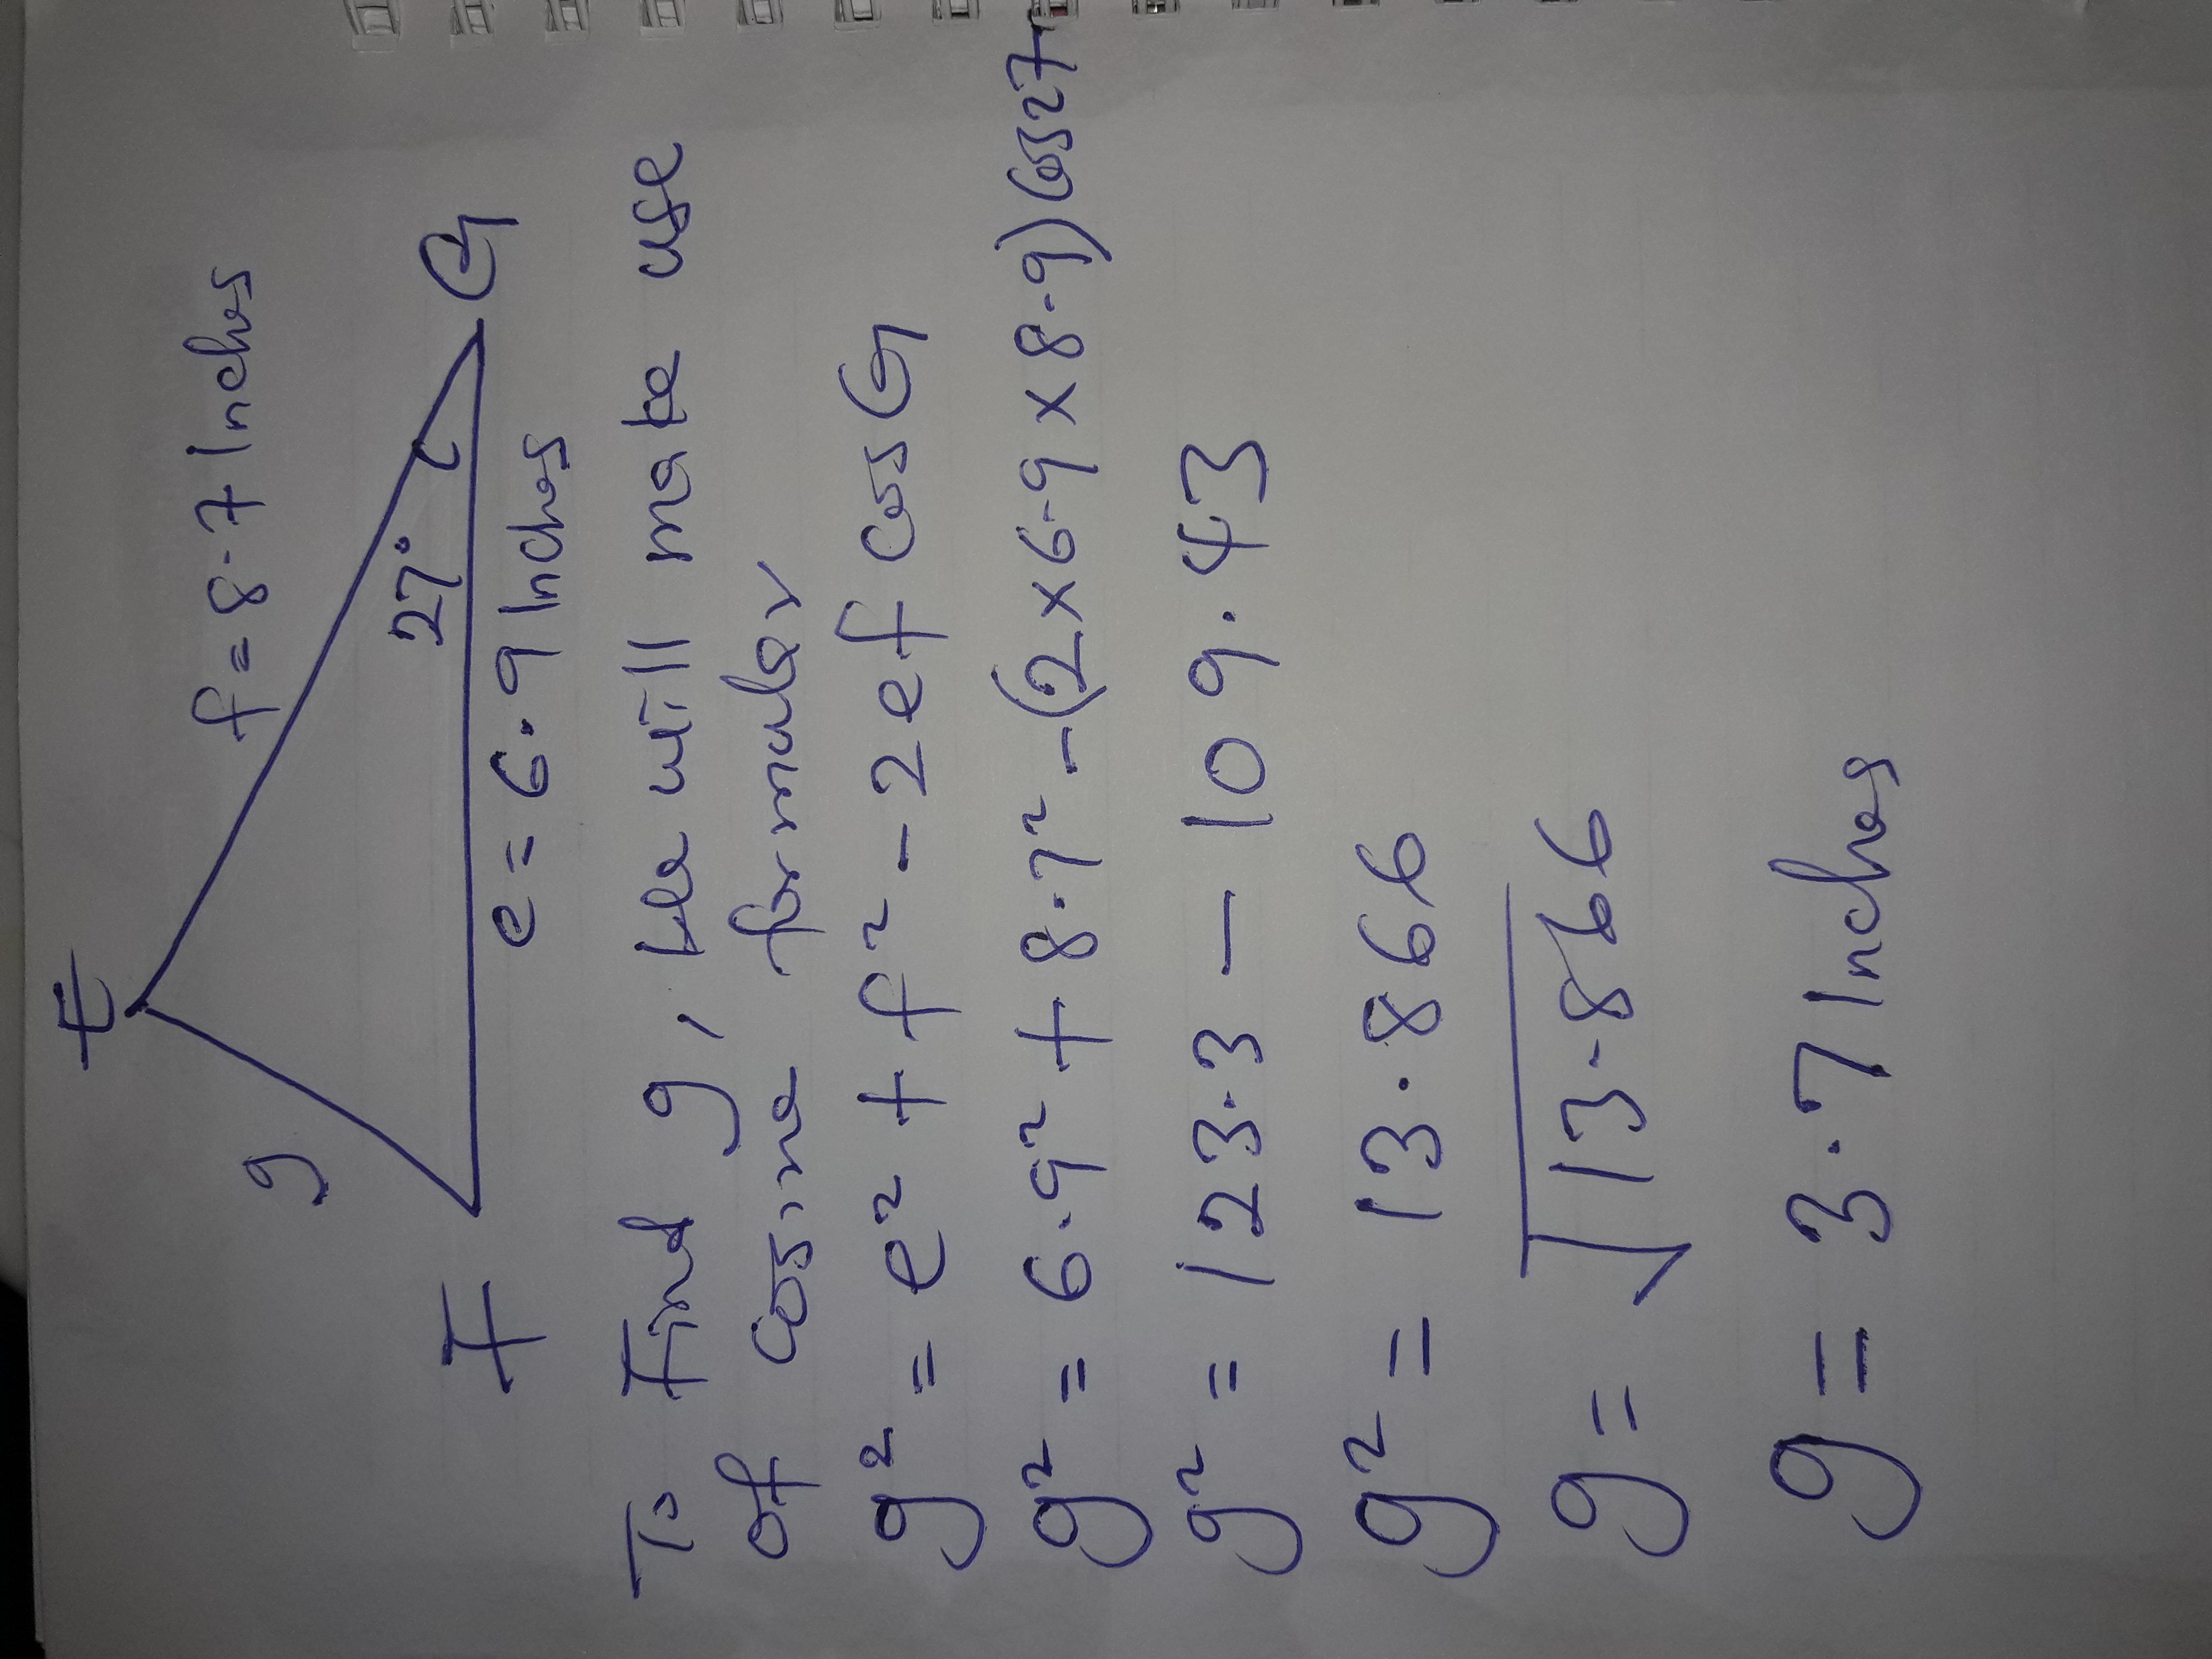 E
f = 8.7 Inches
g
27°
F
G
e = 6.9 Inches
To Find g, we will make use
of cosine formular
g² = e² + f² - 2ef cos G
g² = 6.9² + 8.7² - (2×6.9×8.9) Cos27
g² = 123.3 - 109.43
g² = 13.866
g = √13.866
g = 3.7 Inches